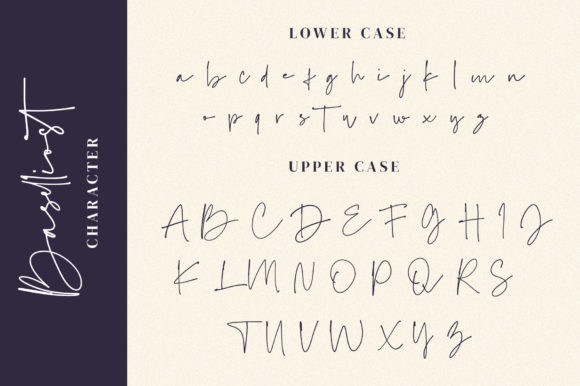 Baselliost
CHARACTER
LOWER CASE
a b c d e f g h i j k l m n
o p q r s t u v w x y z
UPPER CASE
A B C D E F G H I J
K L M N O P Q R S
T U V W X Y Z